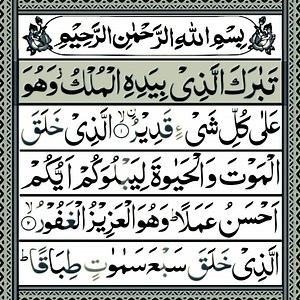 بِسْمِ اللّٰهِ الرَّحْمٰنِ الرَّحِيْمِ
تَبٰرَكَ الَّذِىْ بِيَدِهِ الْمُلْكُ ۫ وَهُوَ
عَلٰى كُلِّ شَىْءٍ قَدِيْرُۨ ۙ‏﴿۱﴾ الَّذِىْ خَلَقَ
الْمَوْتَ وَالْحَيٰوةَ لِيَبْلُوَكُمْ اَيُّكُمْ
اَحْسَنُ عَمَلًا ؕ وَهُوَ الْعَزِيْزُ الْغَفُوْرُ ۙ‏﴿۲﴾
الَّذِىْ خَلَقَ سَبْعَ سَمٰوٰتٍ طِبَاقًا ؕ